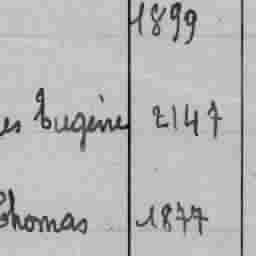 1899
es Eugène 2147
Thomas 1877